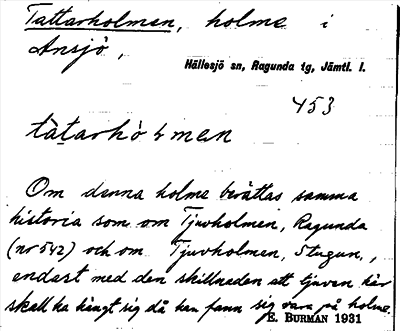 Tattarholmen, holme i
Ansjö,
Hällesjö sn, Ragunda tg, Jämtl. l.
453
tàtarhò ɬmen
Om denna holme berättas samma
historia som om Tjuvholmen, Ragunda
(nr 542) och om Tjuvholmen, Stugun,,
endast med den skillnaden att tjuven här
skall ha hängt sig då han fann sig vara på holme.
E. BURMAN 1931